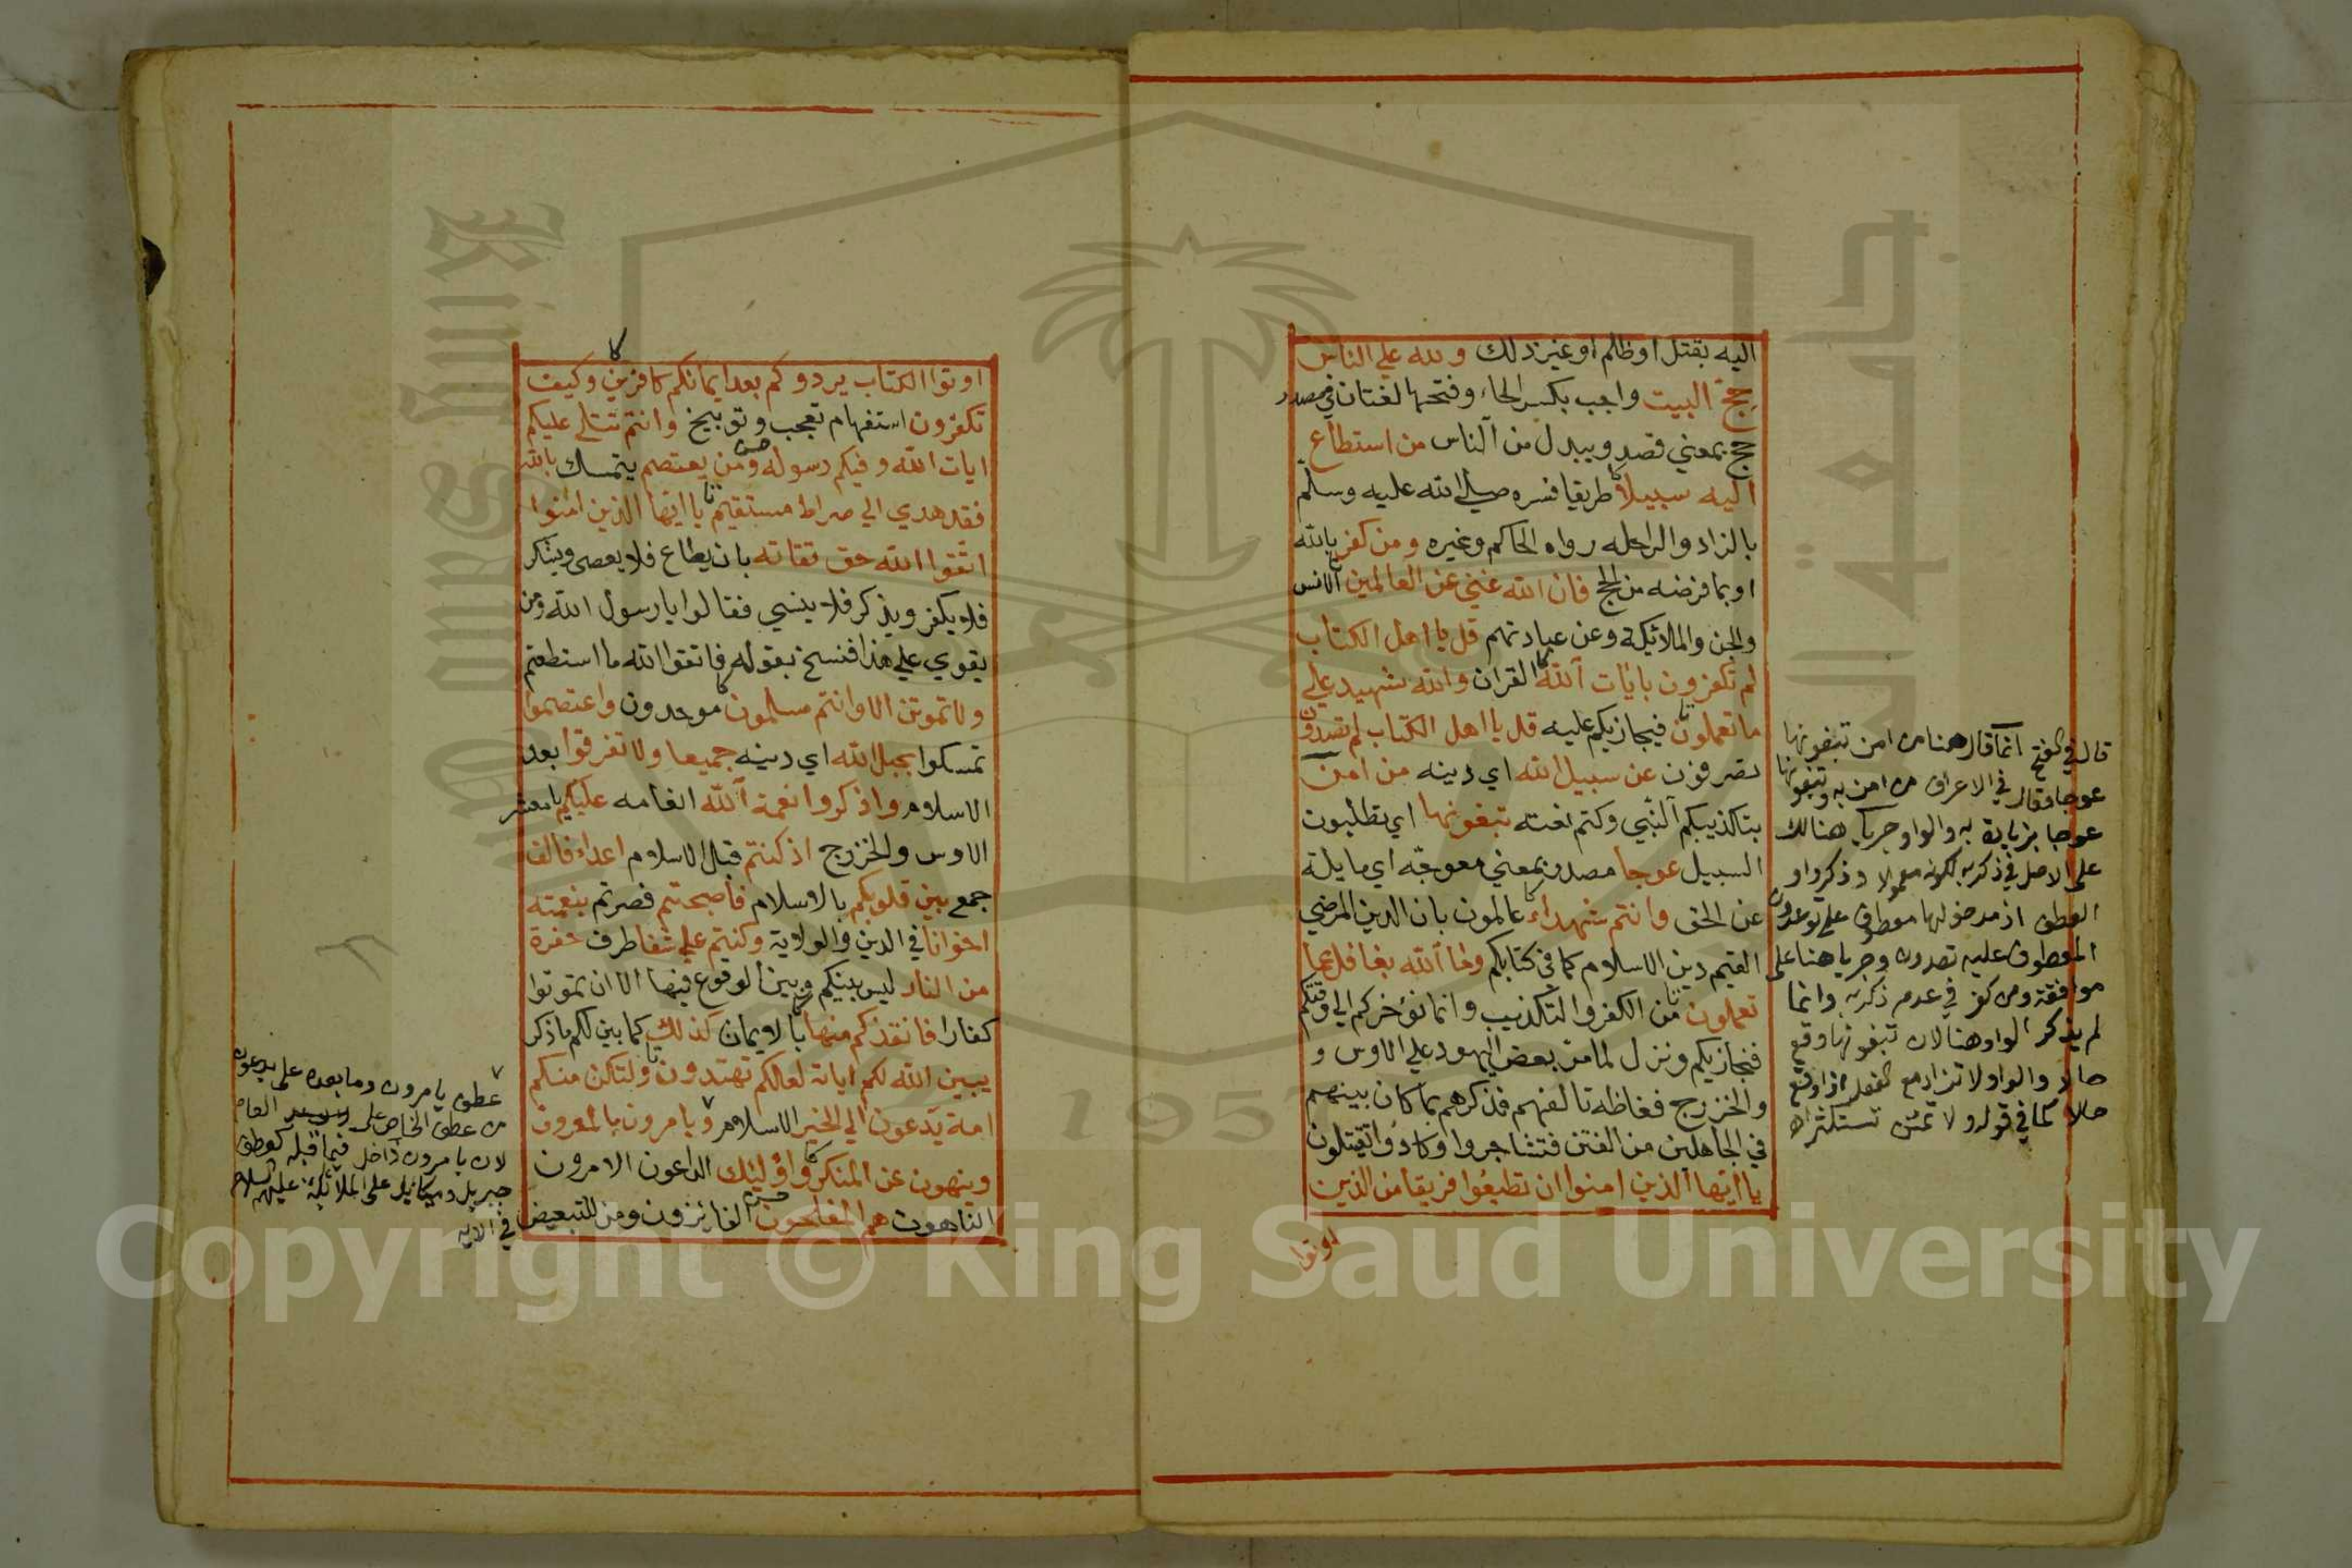 اليه بقتل او ظلم او غير ذلك ولله علي الناس
حج البيت واجب بكسر الحاء وفتحها لغتان في مصدر
حج بمعني قصد ويبدل من الناس من استطاع
اليه سبيلا طريقا فسره صلي الله عليه وسلم
بالزاد والراحله رواه الحاكم وغيره ومن كفر بالله
او بما فرضه من الحج فان الله غني عن العالمين الانس
والجن والملائيكة وعن عبادتهم قل يا اهل الكتاب
لم تكفرون بايات الله القران والله شهيد علي
ما تعملون فيجازيكم عليه قل يا اهل الكتاب لم تصدون
تصرفون عن سبيل الله اي دينه من امن
بتاكذيبكم النبي وكتم نعته تبغونها اي تطلبون
السبيل عوجا مصدر بمعني معوجه اي مايلة
عن الحق وانتم شهداء عالمون بان الدين المرضي
القيم دين الاسلام كما في كتابكم وما الله بغافل عما
تعملون من الكفر والتكذيب وانما نوخركم الي وقتكم
فيجازيكم ونزل لما مر بعض اليهود علي الاوس و
والخزرج فغاظه تالفهم فذكرهم بما كان بينهم
في الجاهلين من الفتن فتشاجروا وكادوا تقتلون
يا ايها الذين امنوا ان تطيعوا فريقا من الذين
اوتوا
قال في الفتح انما قال هنا من امن تبغونها
عوجا وقال في الاعراف من امن به وتبغونها
عوجا بزيادة به والواو جريا هنالك
على الاصل في ذكر به لكونه معمولا وذكر واو
العطف اذ مدخولها معطوف على توعدون
المعطوف عليه تصدون وجريا هنا على
موافقة ومن كفر في عدم ذكر به وانما
لم يذكر الواو هنا لان تبغونها وقع
حالا والواو لا تزاد مع الفعل اذا وقع
حالا كما في قوله ولا تمنن تستكثر اه
اوتوا الكتاب يردوكم بعد ايمانكم كافرين وكيف
تكفرون استفهام تعجب وتوبيخ وانتم تتلي عليكم
ايات الله وفيكم رسوله ومن يعتصم يتمسك بالله
فقد هدي الي صراط مستقيم يا ايها الذين امنوا
اتقوا الله حق تقاته بان يطاع فلا يعصى ويشكر
فلا يكفر ويذكر فلا ينسي فقالوا يا رسول الله ومن
يقوي علي هذا فنسخ بقوله فاتقوا الله ما استطعتم
ولا تموتن الا وانتم مسلمون موحدون واعتصموا
تمسكوا بحبل الله اي دينه جميعا ولا تفرقوا بعد
الاسلام واذكروا نعمة الله انعامه عليكم يا معشر
الاوس والخزرج اذ كنتم قبل الاسلام اعداء فالف
جمع بين قلوبكم بالاسلام فاصبحتم فصرتم بنعمته
اخوانا في الدين والولاية وكنتم علي شفا طرف حفرة
من النار ليس بينكم وبين الوقوع فيها الا ان تموتوا
كفارا فانقذكم منها بالايمان كذلك كما بين لكم ما ذكر
يبين الله لكم اياته لعلكم تهتدون ولتكن منكم
امة يدعون الي الخير الاسلام ويامرون بالمعروف
وينهون عن المنكر واوليك الداعون الامرون
الناهون هم المفلحون الفايزون ومن للتبعيض
عطف يامرون وما بعده على يدعون
من عطف الخاص على العام
لان يامرون داخل فيما قبله كعطف
جبريل وميكائيل على الملائكة عليهم السلام
في الاية
جامعة الملك سعود
King Saud University
1957
Copyright © King Saud University